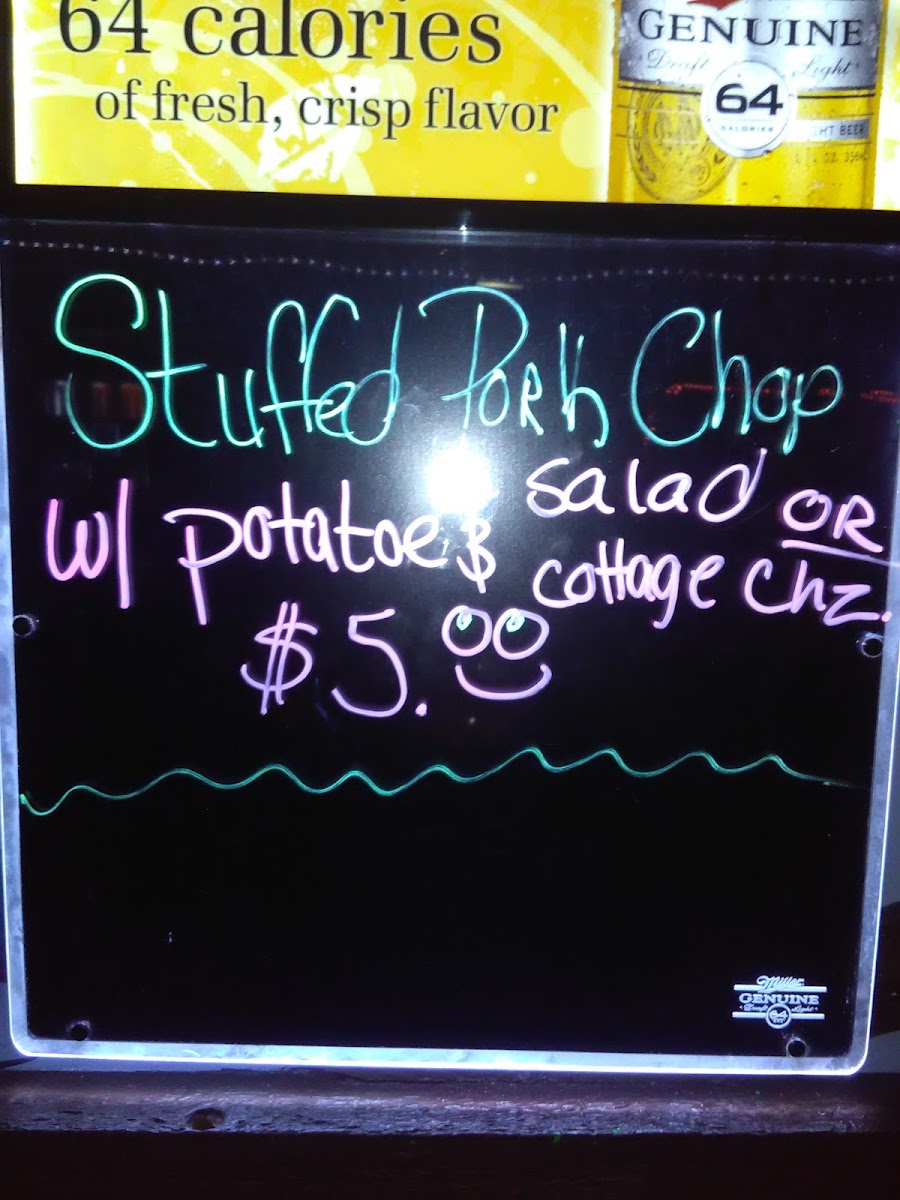 64 calories
of fresh, crisp flavor
GENUINE
Draft Light
64
CALORIES
HT BEER
Stuffed Pork Chop
w/ potatoe & salad OR
cottage chz.
$5.00
Miller
GENUINE
Draft Light
64